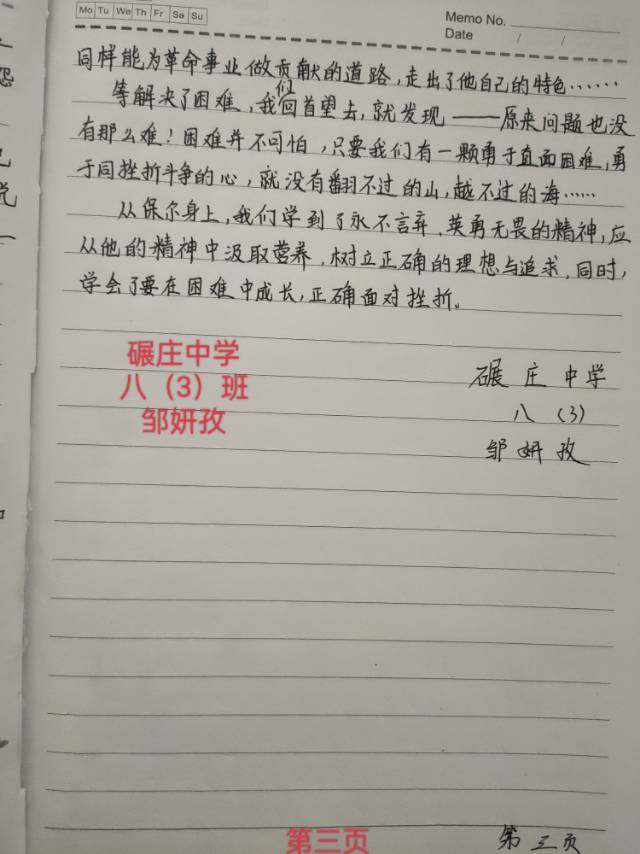 Mo Tu We Th Fr Sa Su
Memo No.
Date / /
同样能为革命事业做贡献的道路，走出了他自己的特色……
等解决了困难，我们回首望去，就发现——原来问题也没
有那么难！困难并不可怕，只要我们有一颗勇于直面困难，勇
于同挫折斗争的心，就没有翻不过的山，越不过的海……
从保尔身上，我们学到了永不言弃、英勇无畏的精神，应
从他的精神中汲取营养，树立正确的理想与追求，同时，
学会了要在困难中成长，正确面对挫折。
碾庄中学
八（3）班
邹妍孜
碾庄中学
八（3）
邹妍孜
第三页
第三页